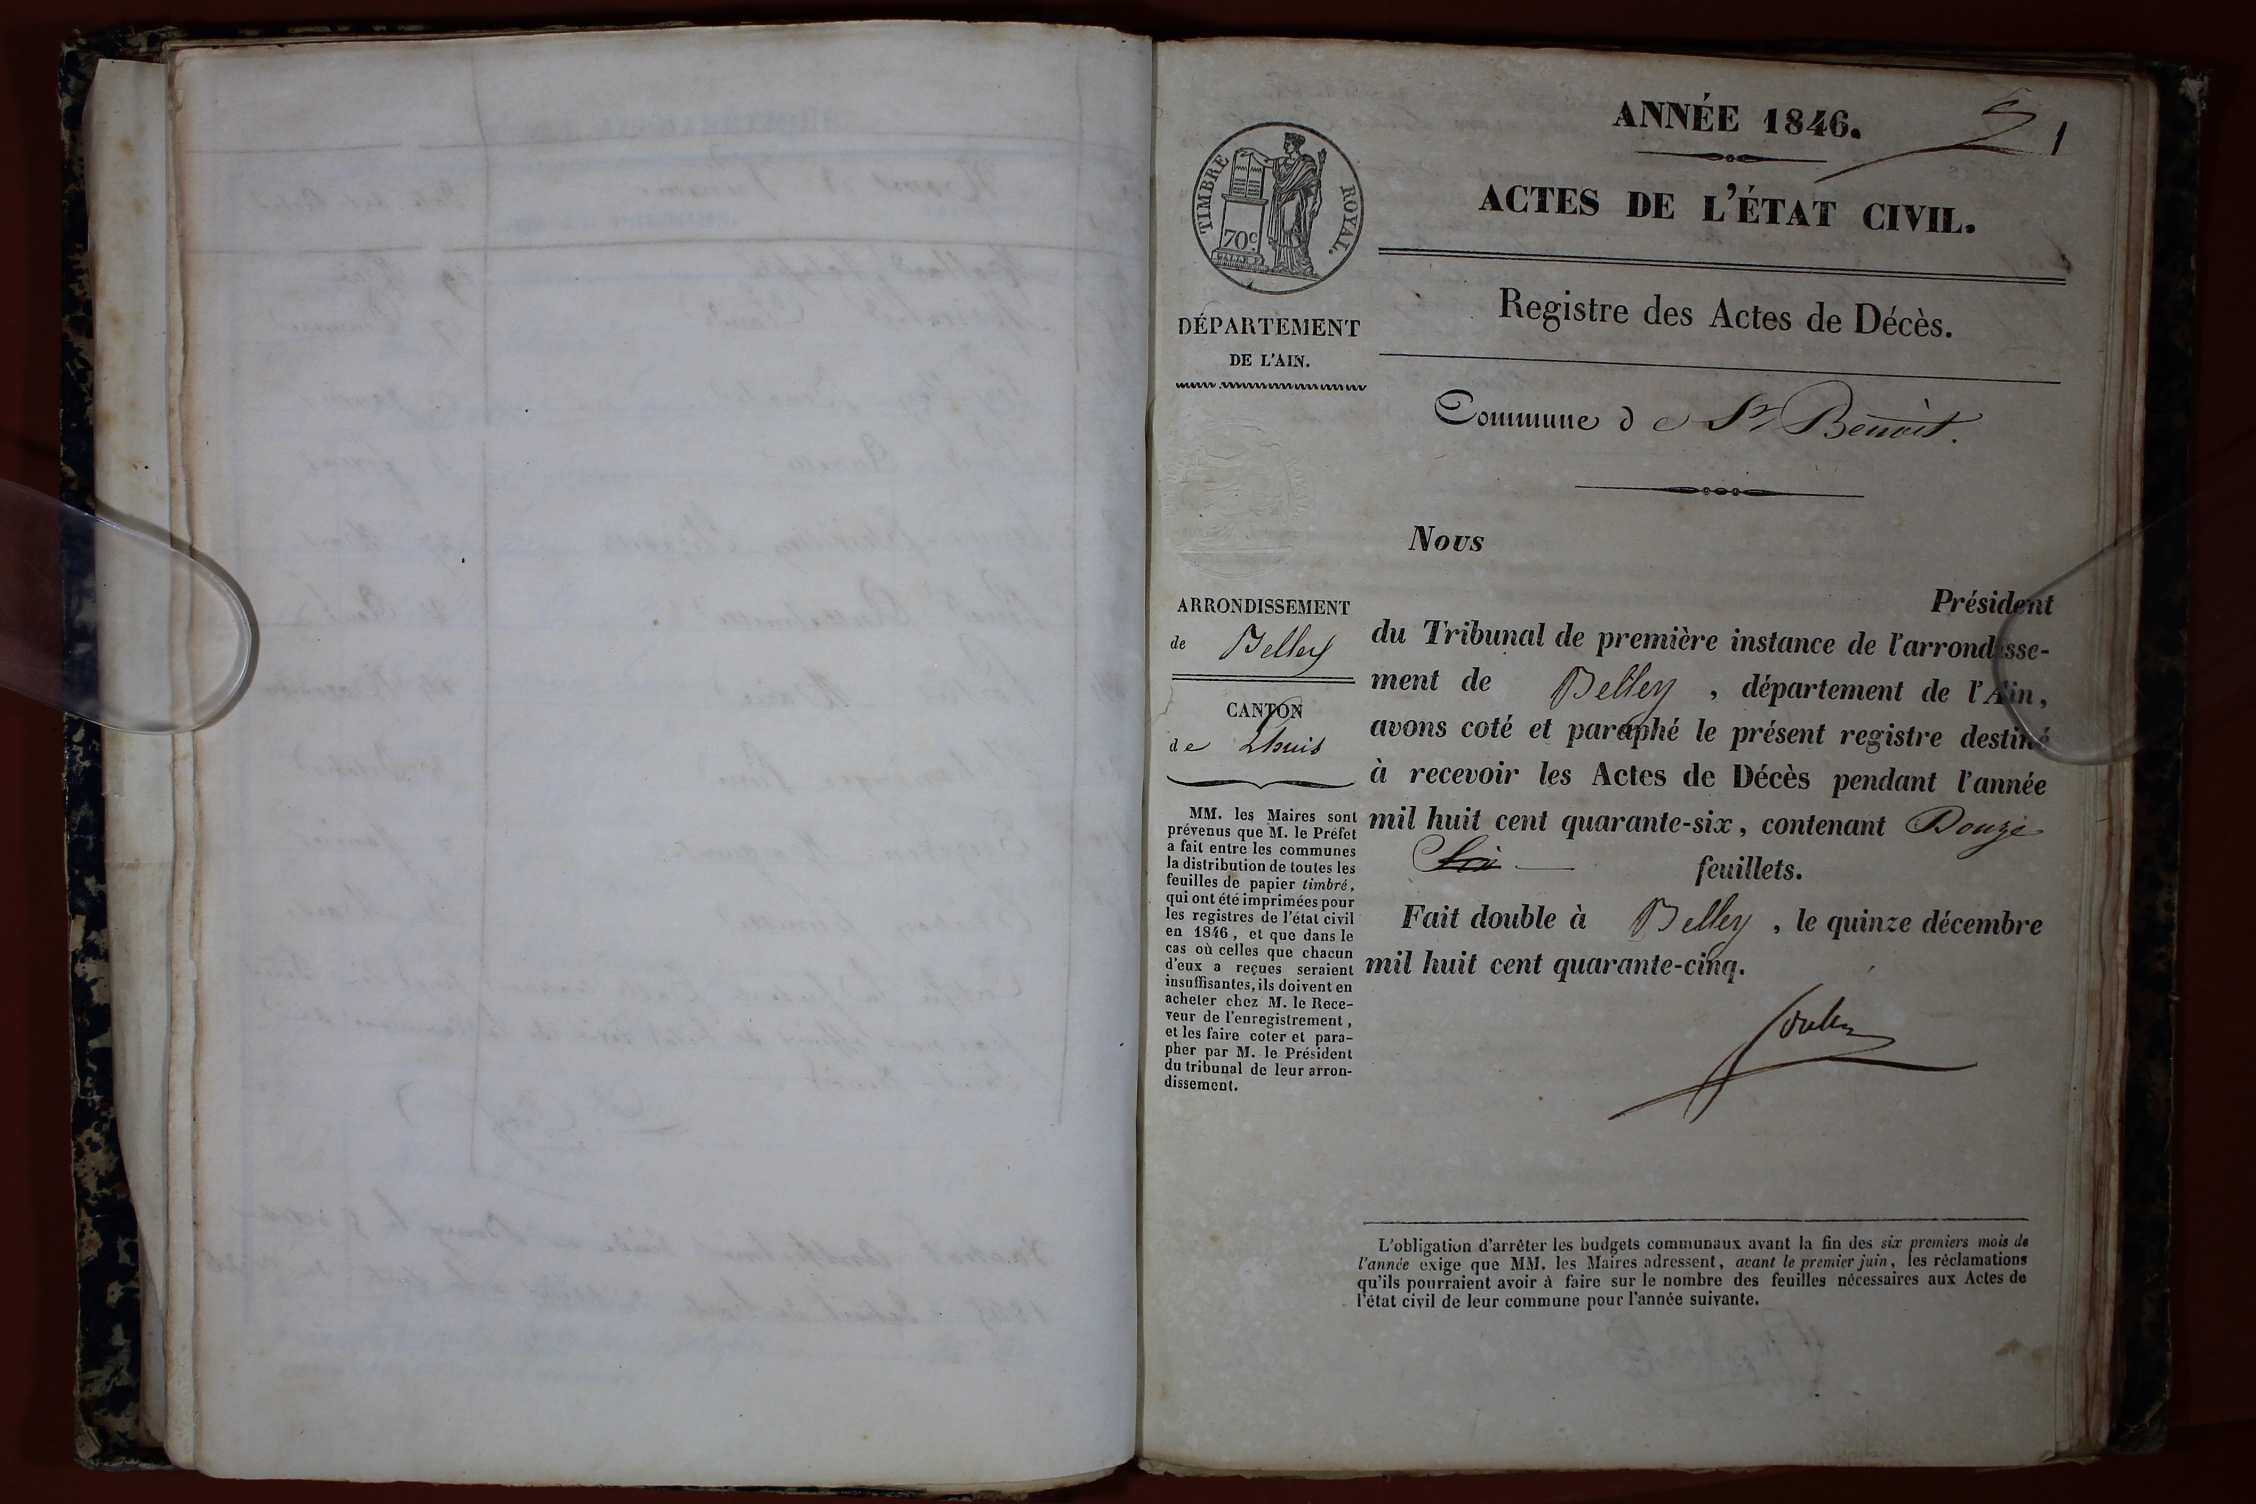 ANNÉE 1846.
1
TIMBRE ROYAL.
70c
ACTES DE L'ÉTAT CIVIL.
Registre des Actes de Décès.
DÉPARTEMENT
DE L'AIN.
Commune de St Benoit.
Nous
Président
du Tribunal de première instance de l'arrondisse-
ment de Belley, département de l'Ain,
avons coté et paraphé le présent registre destiné
à recevoir les Actes de Décès pendant l'année
mil huit cent quarante-six, contenant Douze
Six feuillets.
Fait double à Belley, le quinze décembre
mil huit cent quarante-cinq.
ARRONDISSEMENT
de Belley
CANTON
de Lhuis
MM. les Maires sont
prévenus que M. le Préfet
a fait entre les communes
la distribution de toutes les
feuilles de papier timbré,
qui ont été imprimées pour
les registres de l'état civil
en 1846, et que dans le
cas où celles que chacun
d'eux a reçues seraient
insuffisantes, ils doivent en
acheter chez M. le Rece-
veur de l'enregistrement,
et les faire coter et para-
pher par M. le Président
du tribunal de leur arron-
dissement.
L'obligation d'arrêter les budgets communaux avant la fin des six premiers mois de
l'année exige que MM. les Maires adressent, avant le premier juin, les réclamations
qu'ils pourraient avoir à faire sur le nombre des feuilles nécessaires aux Actes de
l'état civil de leur commune pour l'année suivante.